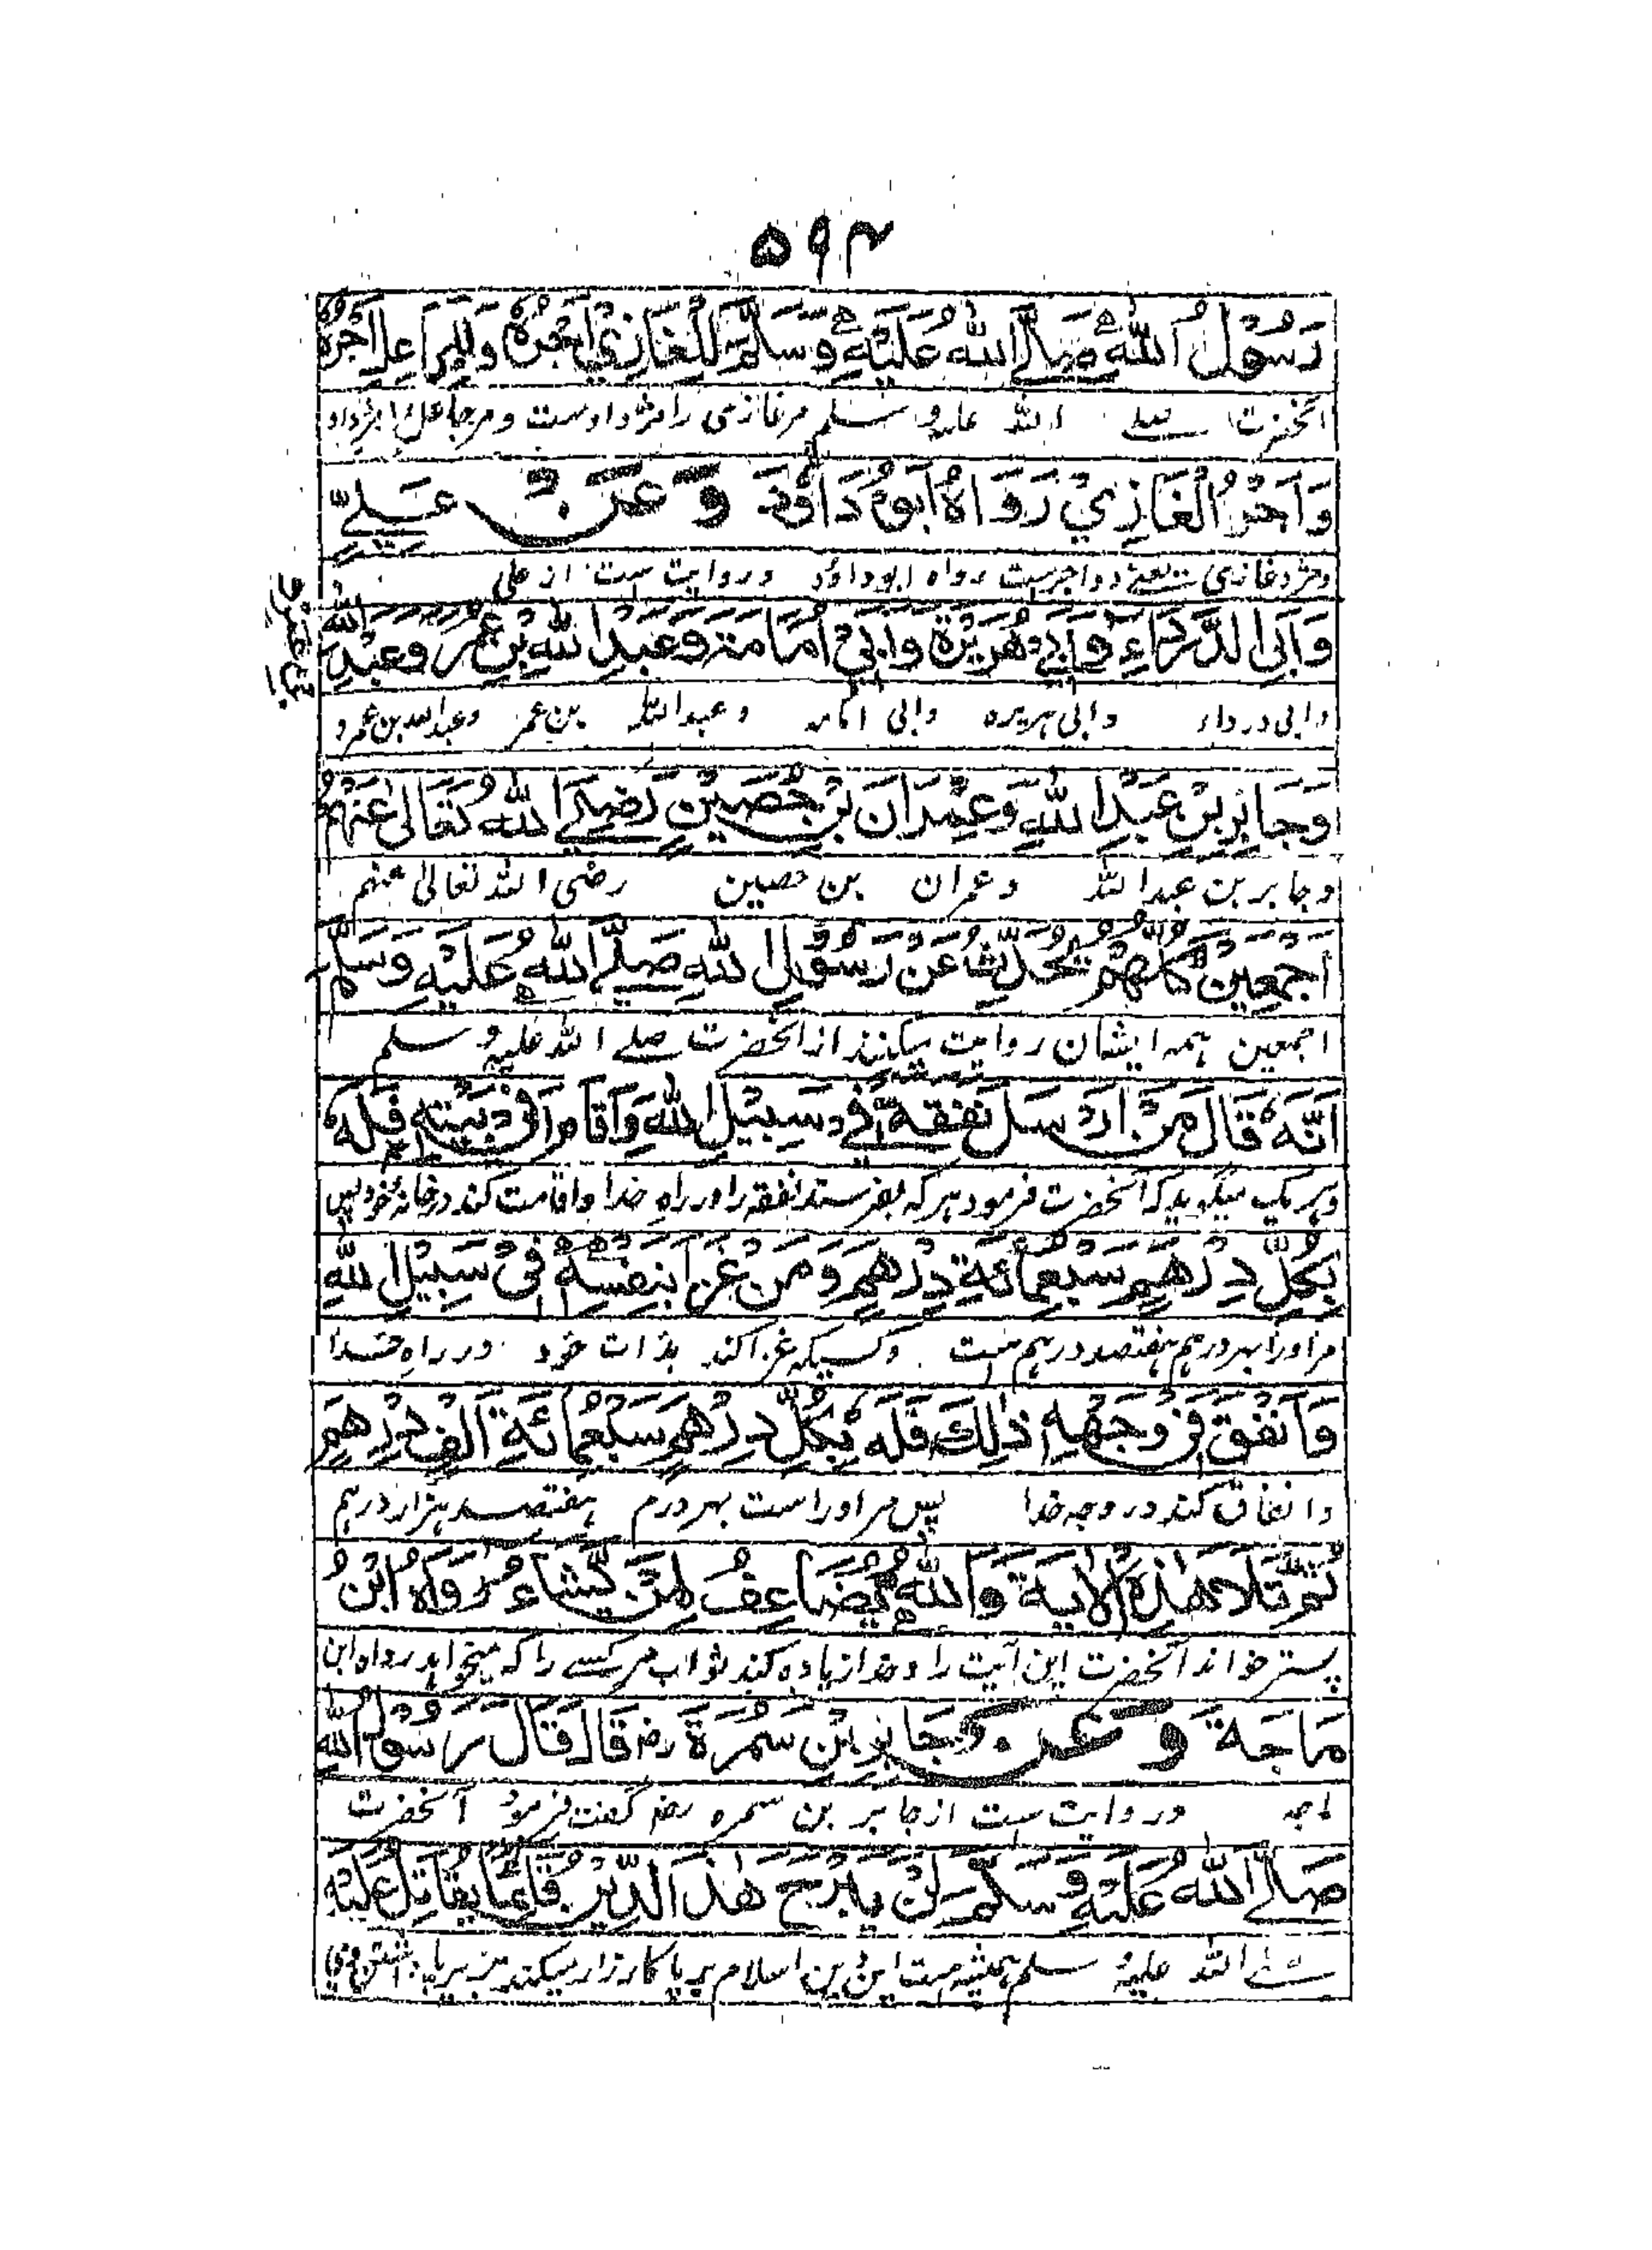 ۵۹۴
رَسُوْلُ اللّٰهِ صَلَّى اللّٰهُ عَلَيْهِ وَسَلَّمَ لِلْغَازِيْ اَجْرُهٗ وَلِلْجَاعِلِ اَجْرُهٗ
آنحضرت صلے الله علیه و سلم مر غازی را مزد اوست و مر جاعل را
وَاَجْرُ الْغَازِيْ رَوَاهُ اَبُوْ دَاوٗدَ وَعَنْ عَلِيٍّ
و مزد غازی یعنے دو اجرست رواه ابوداؤد و روایت ست از علی
وَاَبِي الدَّرْدَاءِ وَاَبِيْ هُرَيْرَةَ وَاَبِيْ اُمَامَةَ وَعَبْدِ اللّٰهِ بْنِ عُمَرَ وَعَبْدِ اللّٰهِ
و ابی درداء و ابی هریره و ابی امامه و عبد الله بن عمر و عبد الله بن عمرو
وَجَابِرِ بْنِ عَبْدِ اللّٰهِ وَعِمْرَانَ بْنِ حُصَيْنٍ رَضِيَ اللّٰهُ تَعَالٰى عَنْهُمْ
و جابر بن عبد الله و عمران بن حصین رضی الله تعالی عنهم
اَجْمَعِيْنَ كُلُّهُمْ يُحَدِّثُ عَنْ رَسُوْلِ اللّٰهِ صَلَّى اللّٰهُ عَلَيْهِ وَسَلَّمَ
اجمعین همه ایشان روایت میکنند از آنحضرت صلے الله علیه و سلم
اَنَّهٗ قَالَ مَنْ اَرْسَلَ نَفَقَةً فِيْ سَبِيْلِ اللّٰهِ وَاَقَامَ فِيْ بَيْتِهٖ فَلَهٗ
و هر یک میگوید که آنحضرت فرمود هر که بفرستد نفقه را در راه خدا و اقامت کند در خانه خود پس
بِكُلِّ دِرْهَمٍ سَبْعُمِائَةِ دِرْهَمٍ وَمَنْ غَزَا بِنَفْسِهٖ فِيْ سَبِيْلِ اللّٰهِ
مر او را بهر درهم هفتصد درهم ست و کسیکه غزا کند بذات خود در راه خدا
وَاَنْفَقَ فِيْ وَجْهِهٖ ذٰلِكَ فَلَهٗ بِكُلِّ دِرْهَمٍ سَبْعُمِائَةِ اَلْفِ دِرْهَمٍ
و انفاق کند در وجه خدا پس مر او راست بهر درم هفتصد هزار درهم
ثُمَّ تَلَا هٰذِهِ الْاٰيَةَ وَاللّٰهُ يُضَاعِفُ لِمَنْ يَّشَاءُ رَوَاهُ ابْنُ
پستر خواند آنحضرت این آیت را و خدا زیاده کند ثواب مر کسے را که میخواهد رواه ابن
مَاجَةَ وَعَنْ جَابِرِ بْنِ سَمُرَةَ رض قَالَ قَالَ رَسُوْلُ اللّٰهِ
ماجه و روایت ست از جابر بن سمره رض گفت فرمود آنحضرت
صَلَّى اللّٰهُ عَلَيْهِ وَسَلَّمَ لَنْ يَّبْرَحَ هٰذَا الدِّيْنُ قَائِمًا يُقَاتِلُ عَلَيْهِ
صلے الله علیه و سلم همیشه ست این دین اسلام برپا کارزار میکنند